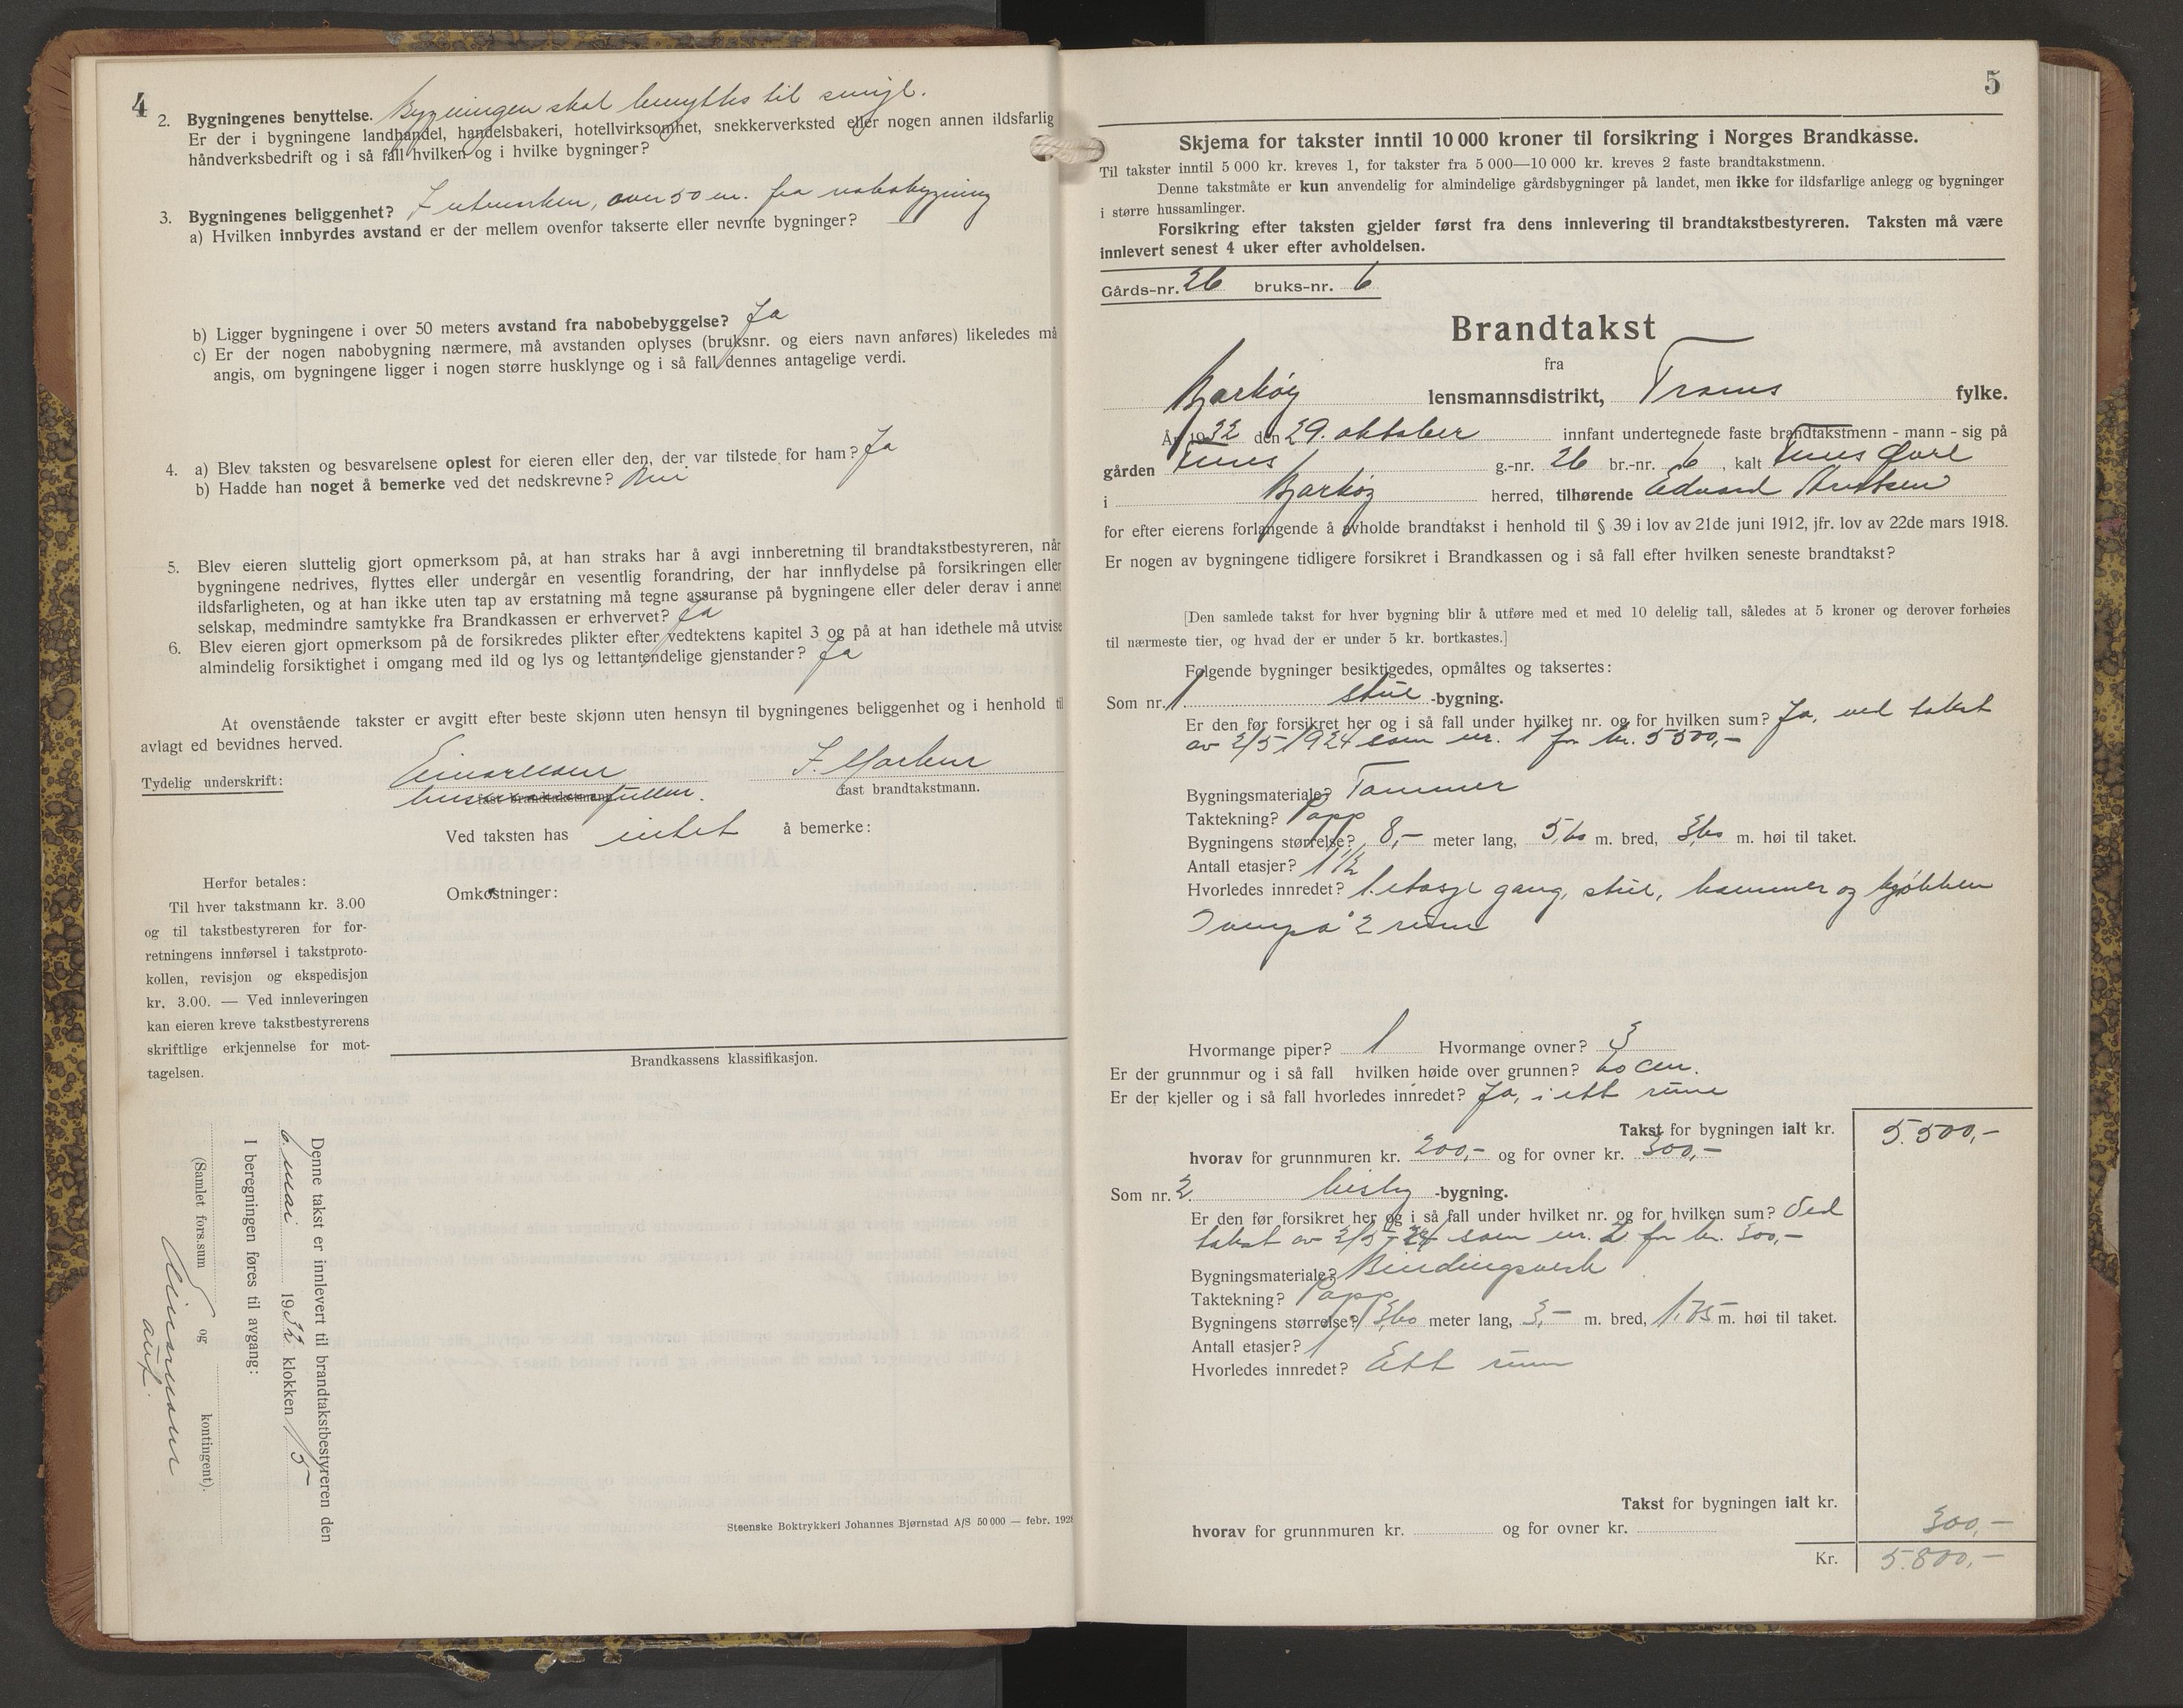 4
2. Bygningenes benyttelse. Bygningen skal benyttes til
Er der i bygningene landhandel, handelsbakeri, hotellvirksomhet, snekkerverksted eller nogen annen ildsfarlig
håndverksbedrift og i så fall hvilken og i hvilke bygninger?
3. Bygningenes beliggenhet? I utmarken, over 50 m. fra nabobygning
a) Hvilken innbyrdes avstand er der mellem ovenfor takserte eller nevnte bygninger?
b) Ligger bygningene i over 50 meters avstand fra nabobebyggelse? Ja
c) Er der nogen nabobygning nærmere, må avstanden oplyses (bruksnr. og eiers navn anføres) likeledes må
angis, om bygningene ligger i nogen større husklynge og i så fall dennes antagelige verdi.
4. a) Blev taksten og besvarelsene oplest for eieren eller den, der var tilstede for ham? Ja
b) Hadde han noget å bemerke ved det nedskrevne? Nei
5. Blev eieren sluttelig gjort opmerksom på, at han straks har å avgi innberetning til brandtakstbestyreren, når
bygningene nedrives, flyttes eller undergår en vesentlig forandring, der har innflydelse på forsikringen eller
ildsfarligheten, og at han ikke uten tap av erstatning må tegne assuranse på bygningene eller deler derav i annet
selskap, medmindre samtykke fra Brandkassen er erhvervet? Ja
6. Blev eieren gjort opmerksom på de forsikredes plikter efter vedtektens kapitel 3 og på at han idethele må utvise
almindelig forsiktighet i omgang med ild og lys og lettantendelige gjenstander? Ja
At ovenstående takster er avgitt efter beste skjønn uten hensyn til bygningenes beliggenhet og i henhold til
avlagt ed bevidnes herved.
Tydelig underskrift: Einarsen
fast brandtakstmann. fast brandtakstmann.
Ved taksten has intet å bemerke:
Omkostninger:
Herfor betales:
Til hver takstmann kr. 3.00
og til takstbestyreren for for-
retningens innførsel i takstproto-
kollen, revisjon og ekspedisjon
kr. 3.00. — Ved innleveringen
kan eieren kreve takstbestyrerens
skriftlige erkjennelse for mot-
tagelsen.
Brandkassens klassifikasjon.
Denne takst er innlevert til brandtakstbestyreren den
6. mai 1932 klokken 15
I beregningen føres til avgang:
(Samlet fors.sum og kontingent).
Einarsen
Steenske Boktrykkeri Johannes Bjørnstad A/S 50 000 — febr. 1928
5
Skjema for takster inntil 10 000 kroner til forsikring i Norges Brandkasse.
Til takster inntil 5 000 kr. kreves 1, for takster fra 5 000—10 000 kr. kreves 2 faste brandtakstmenn.
Denne takstmåte er kun anvendelig for almindelige gårdsbygninger på landet, men ikke for ildsfarlige anlegg og bygninger
i større hussamlinger.
Forsikring efter taksten gjelder først fra dens innlevering til brandtakstbestyreren. Taksten må være
innlevert senest 4 uker efter avholdelsen.
Gårds-nr. 26 bruks-nr. 6
Brandtakst
fra
Bjarkøy lensmannsdistrikt, Troms fylke.
År 1932 den 29. oktober innfant undertegnede faste brandtakstmenn - mann - sig på
gården g.-nr. 26 br.-nr. 6, kalt
i Bjarkøy herred, tilhørende Edvard
for efter eierens forlangende å avholde brandtakst i henhold til § 39 i lov av 21de juni 1912, jfr. lov av 22de mars 1918.
Er nogen av bygningene tidligere forsikret i Brandkassen og i så fall efter hvilken seneste brandtakst?
[Den samlede takst for hver bygning blir å utføre med et med 10 delelig tall, således at 5 kroner og derover forhøies
til nærmeste tier, og hvad der er under 5 kr. bortkastes.]
Følgende bygninger besiktigedes, opmåltes og taksertes:
Som nr. 1 stue -bygning.
Er den før forsikret her og i så fall under hvilket nr. og for hvilken sum? Ja, ved takst
av 2/5 1924 som nr. 1 for kr. 5500,-
Bygningsmateriale? Tømmer
Taktekning? Papp
Bygningens størrelse? 8,- meter lang, 5,60 m. bred, 3,60 m. høi til taket.
Antall etasjer? 1 1/2
Hvorledes innredet? 1. etasje gang, stue, kammer og kjøkken
Ovenpå 2 rum
Hvormange piper? 1 Hvormange ovner? 3
Er der grunnmur og i så fall hvilken høide over grunnen? 60 cm.
Er der kjeller og i så fall hvorledes innredet? Ja, i ett rum
Takst for bygningen ialt kr. 5.500,-
hvorav for grunnmuren kr. 200,- og for ovner kr. 300,-
Som nr. 2 -bygning.
Er den før forsikret her og i så fall under hvilket nr. og for hvilken sum? Ved
takst av 2/5-24 som nr. 2 for kr. 300,-
Bygningsmateriale? Bindingsverk
Taktekning? Papp
Bygningens størrelse? 3,60 meter lang, 3,- m. bred, 1.75 m. høi til taket.
Antall etasjer? 1
Hvorledes innredet? Ett rum
Takst for bygningen ialt kr.
hvorav for grunnmuren kr. og for ovner kr. 300,-
Kr. 5.800,-